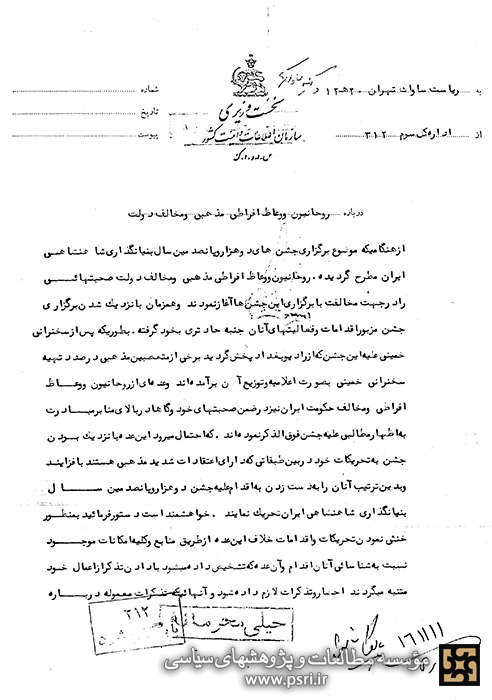 به ریاست ساواک تهران ۲۰ هـ ۱۲
از اداره کل سوم ۳۱۲
نخست وزیری
سازمان اطلاعات و امنیت کشور
س.ا.و.ا.ک
شماره
تاریخ
پیوست
درباره روحانیون ووعاظ افراطی مذهبی ومخالف دولت
ازهنگامیکه موضوع برگزاری جشن های دوهزاروپانصدمین سال بنیانگذاری شاهنشاهی
ایران مطرح گردیده. روحانیون ووعاظ افراطی مذهبی ومخالف دولت صحبتهائی
رادرجهت مخالفت بابرگزاری این جشن ها آغازنمودند وهمزمان بانزدیک شدن برگزاری
جشن مزبوراقدامات وفعالیتهای آنان جنبه حادتری بخودگرفته. بطوریکه پس ازسخنرانی
خمینی علیه این جشن که ازرادیوبغداد پخش گردید برخی ازمتعصبین مذهبی درصدد تهیه
سخنرانی خمینی بصورت اعلامیه وتوزیع آن برآمده اند وعده ای ازروحانیون ووعاظ
افراطی ومخالف حکومت ایران نیزدرضمن صحبتهای خود وگاها دربالای منابرمبادرت
به اظهارمطالبی علیه جشن فوق الذکرنموده اند. که احتمال میرود این عده بانزدیک بودن
جشن به تحریکات خود دربین طبقاتی که دارای اعتقادات شدید مذهبی هستند بافزایند
وبدین ترتیب آنان رابه دست زدن به اقدام علیه جشن دوهزاروپانصدمین سال
بنیانگذاری شاهنشاهی ایران تحریک نمایند. خواهشمند است دستورفرمائید بمنظور
خنثی نمودن تحریکات واقدامات خلاف این عده ازطریق منابع وکلیه امکانات موجود
نسبت به شناسائی آنان اقدام وآن عده که تشخیص داده میشود بادادن تذکرازاعمال خود
متنبه میگردند احضاروتذکرات لازم داده شود و آنهائیکه تذکرات معموله درباره
۳۱۲
خیلی محرمانه
۱۶/۱۱/۱
مؤسسه مطالعات و پژوهشهای سیاسی
www.psri.ir